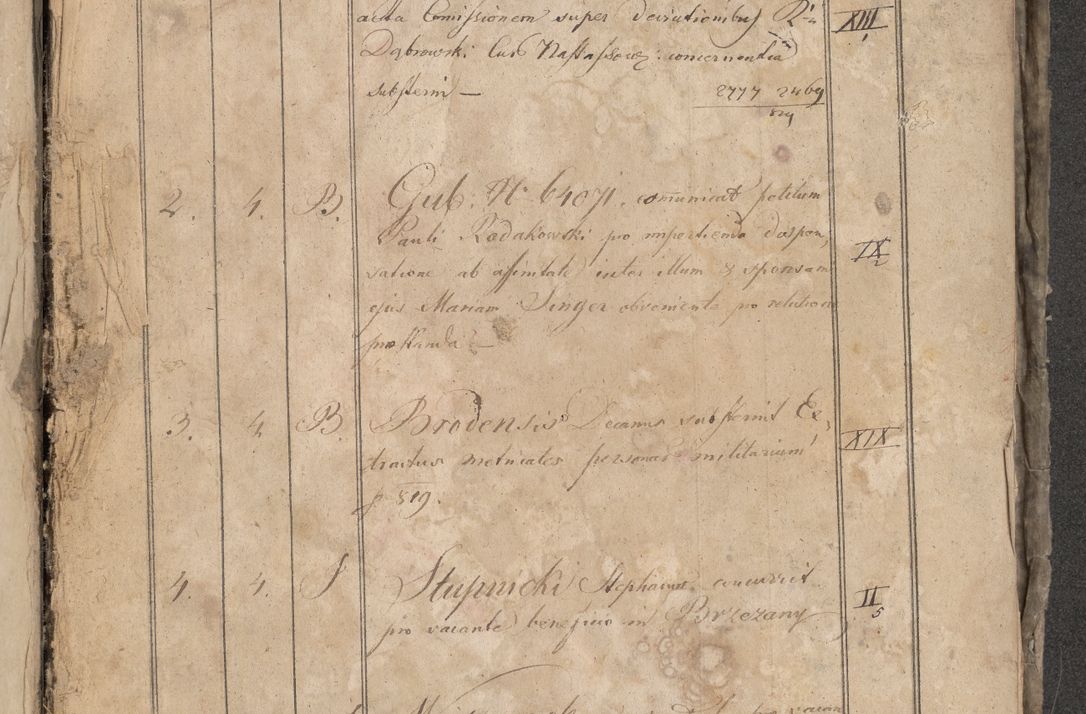 acta Comissionem super deviationibus R
XIII
1
Dąbrowski concernentia
substernit —
2777 2469
829
2. 4. B. Gub. N 64071. comunicat petitum
Pauli Rodakowski pro impertienda dispen,
IX
2
satione ab affinitate inter illum & sponsam
ejus Mariam Singer obveniente pro relatione
præstanda —
3. 4. B. Brodensis Decanus substernit Ex,
XIX
tractus metricales personar militarium
p 819.
4. 4. S Stupnicki Stephanus concurrit
II
5
pro vacante beneficio in Brzezany